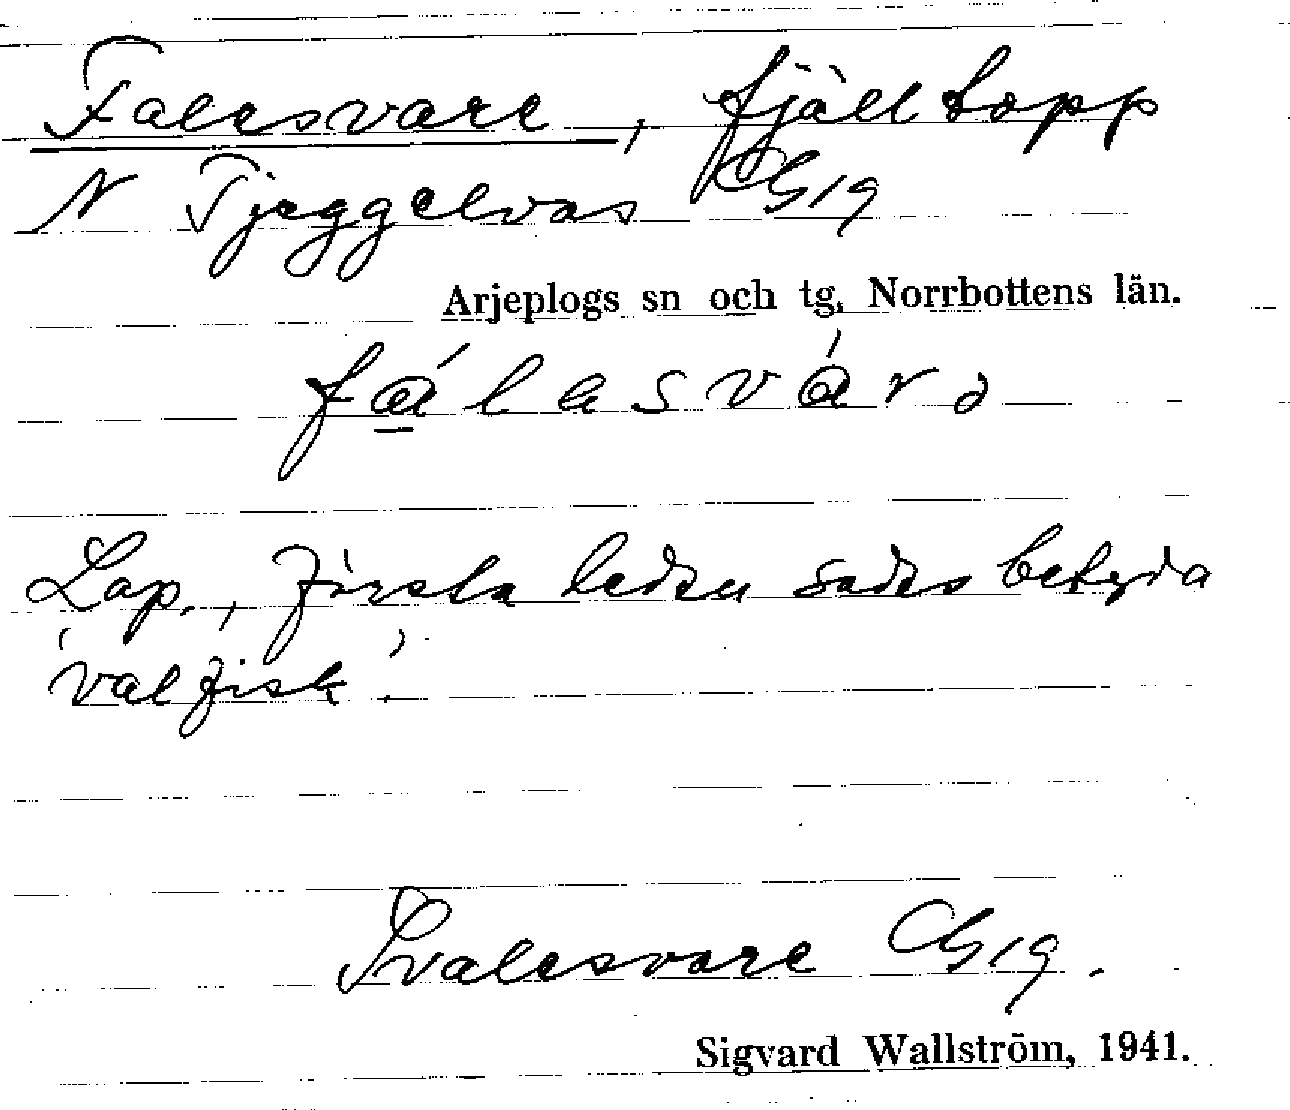 Falesvare, fjälltopp
N Tjeggelvas Gb 19
Arjeplogs sn och tg, Norrbottens län.
fá̲lesvárə
Lap., första leden sades betyda
'valfisk'.
Svalesvare Gb 19.
Sigvard Wallström, 1941.